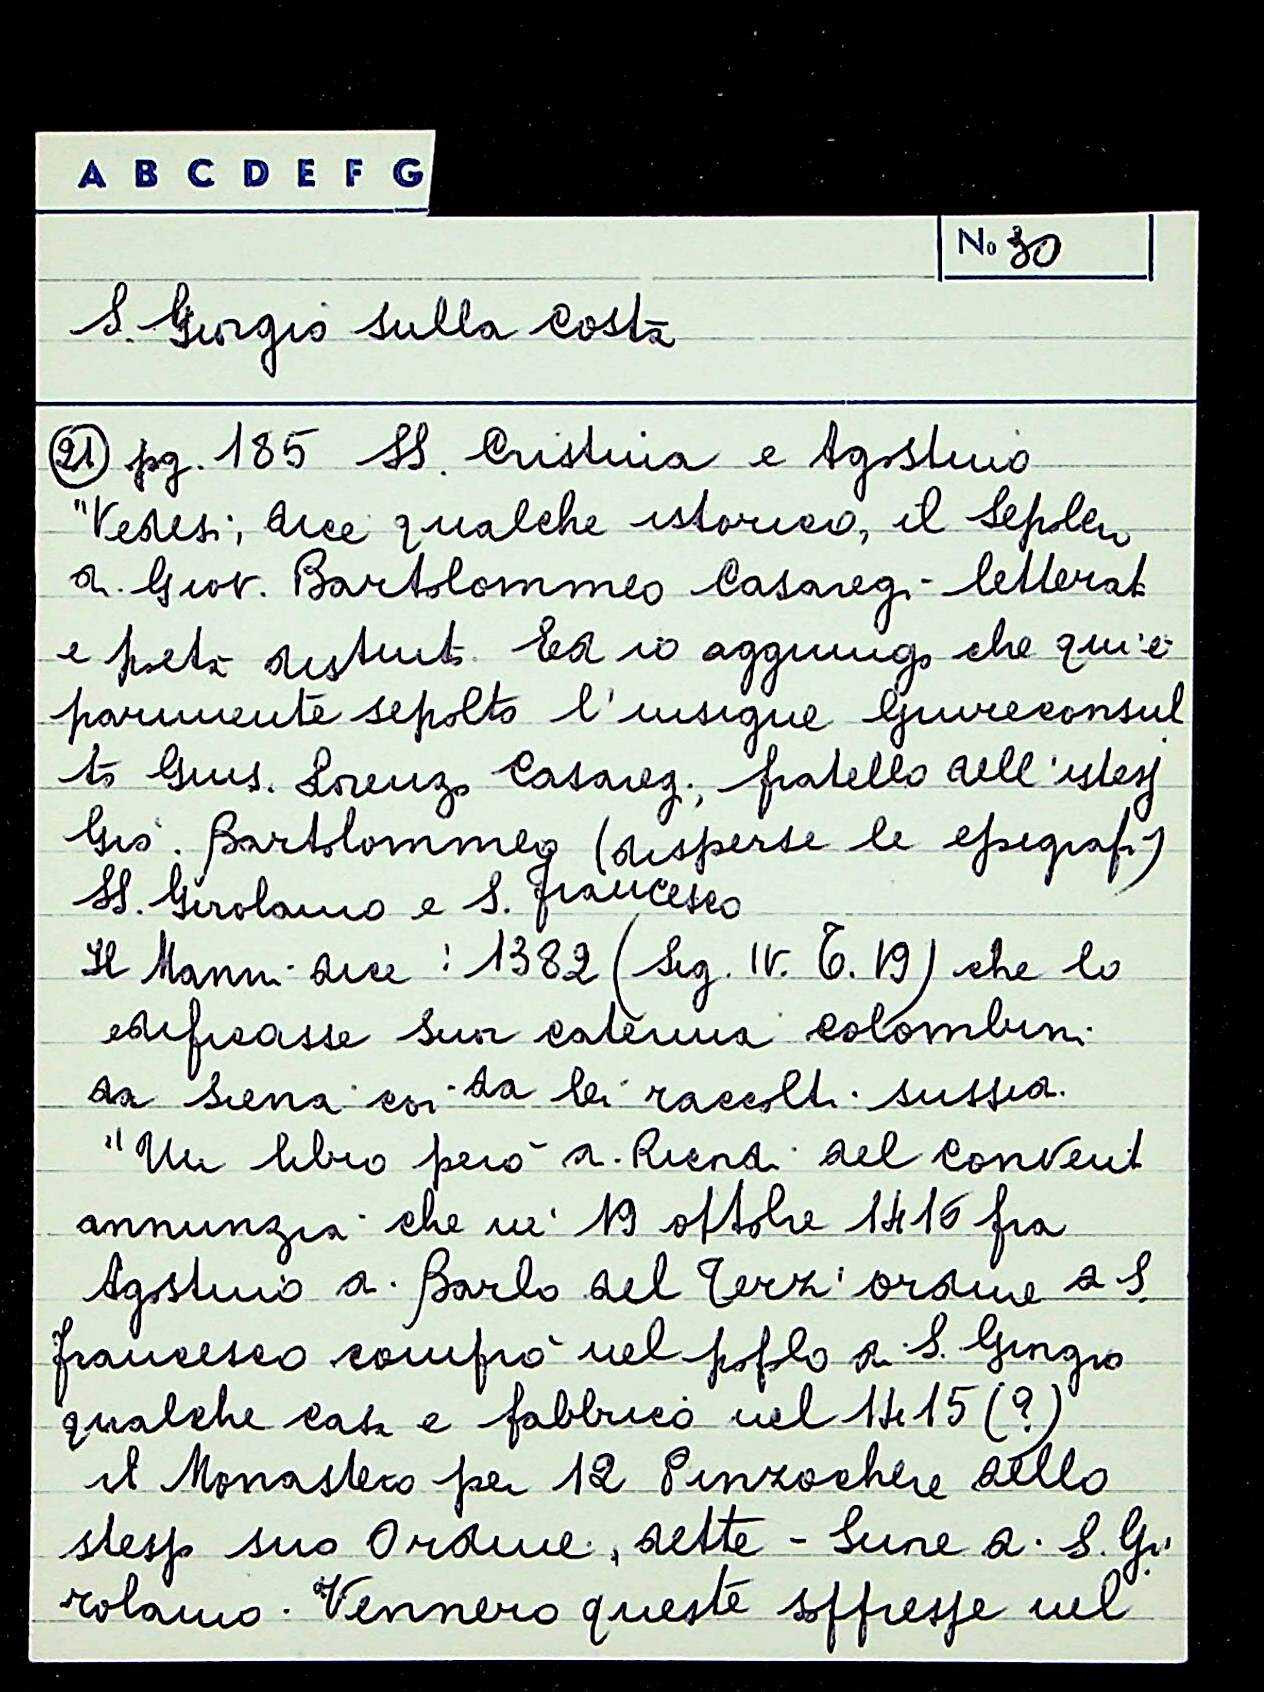 A B C D E F G
No 30
S. Giorgio sulla Costa
(21) pg. 185 SS. Cristina e Agostino
"Vedesi, dice qualche istorico, il Sepolcro
di Giov. Bartolommeo Casaregi - letterato
e poeta distinto. Ed io aggiungo che qui è
parimente sepolto l'insigne Giureconsul
to Gius. Lorenzo Casaregi, fratello dell'istesso
Gio. Bartolommeo (disperse le epigrafi)
SS. Girolamo e S. Francesco
Il Manni dice: 1382 (Sig. IV. T. 19) che lo
edificasse Suor Caterina Colombini
da Siena coi da lei raccolti sussidi.
"Un libro però di Ricordi del Convento
annunzia che ne' 19 ottobre 1416 fra
Agostino di Barlo del Terz'ordine di S.
Francesco comprò nel popolo di S. Giorgio
qualche casa e fabbricò nel 1415 (?)
il Monastero per 12 Pinzochere dello
stesso suo Ordine, dette - Suore di S. Gi
rolamo. Vennero queste soppresse nel